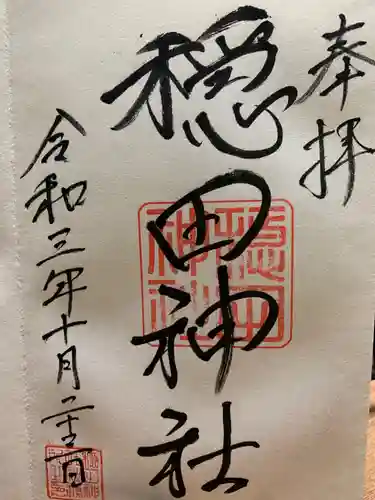 奉拝
穏田神社
令和三年十月
穏田
神社